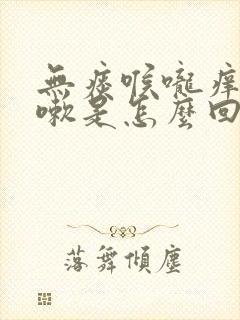 無痰喉嚨痒
嗽是怎麼回
落舞傾塵